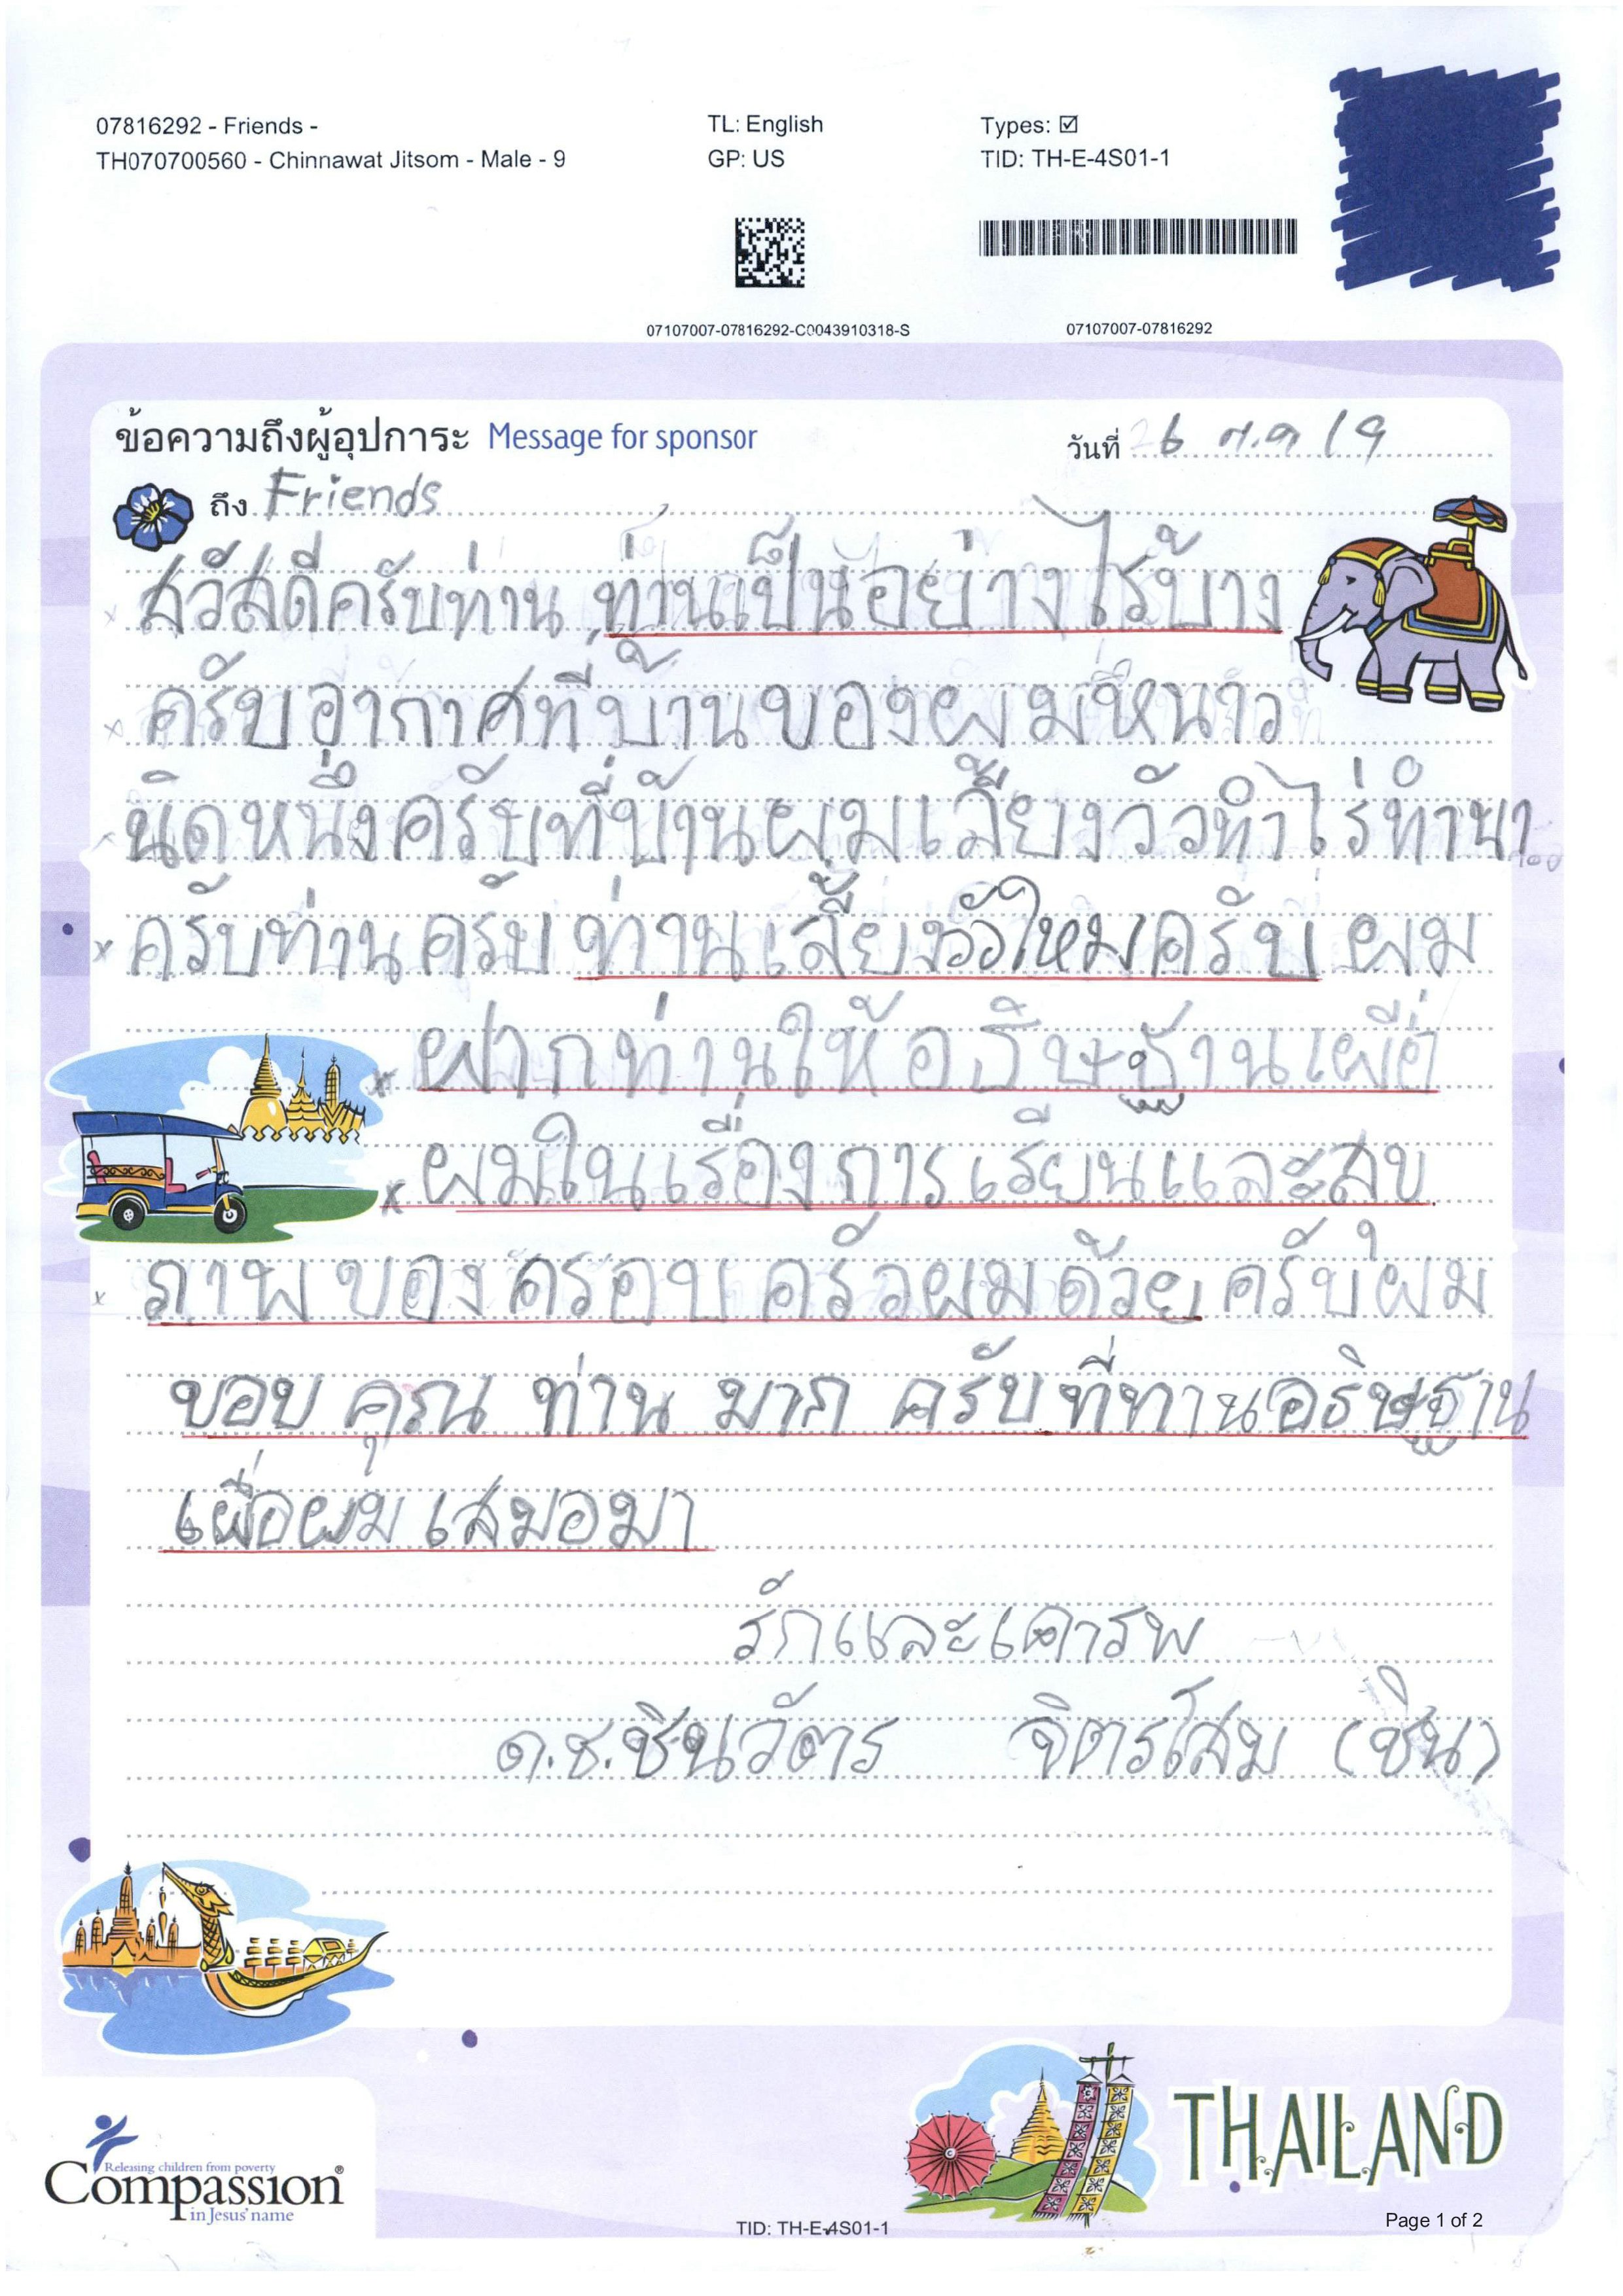 07816292 - Friends -
TH070700560 - Chinnawat Jitsom - Male - 9
TL: English
GP: US
Types: ☑
TID: TH-E-4S01-1
07107007-07816292-C0043910318-S
07107007-07816292
ข้อความถึงผู้อุปการะ Message for sponsor
วันที่ 26 ต.ค 19
ถึง Friends
สวัสดีครับท่าน ท่านเป็นอย่างไร้บ้าง
ครับ อากาศที่บ้านของผมหนาว
นิดหนึ่งครับที่บ้านผมเลี้ยงวัวทำไร่ทำนา
ครับท่านครับ ท่านเลี้ยงวัวใหมครับ ผม
ฝากท่านให้อธิษฐานเผื่อ
ผมในเรื่องการเรียนและสุข
ภาพของครอบครัวผมด้วยครับผม
ขอบคุณ ท่าน มาก ครับที่ทานอธิษฐาน
เผื่อผม เสมอมา
รักและเคารพ
ด.ช.ชินวัตร จิตรโสม (ชิน)
Releasing children from poverty
Compassion®
in Jesus' name
THAILAND
TID: TH-E-4S01-1
Page 1 of 2